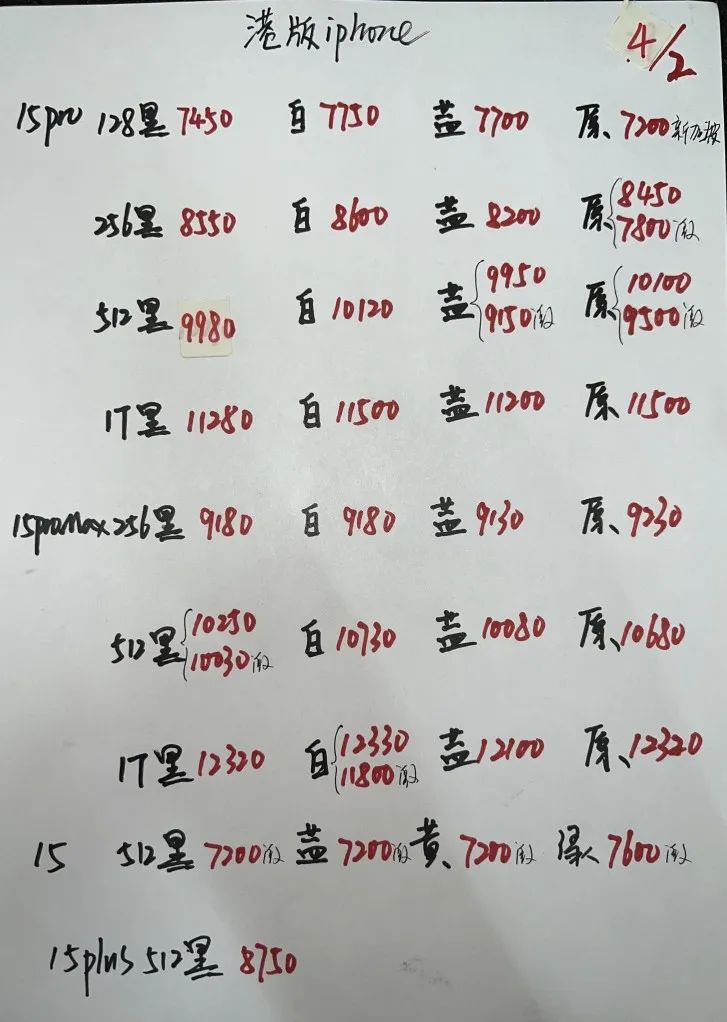 港版iphone 4/2
15pro 128黑 7450 白 7750 蓝 7700 原 7200 新加坡
256黑 8550 白 8600 蓝 8200 原 8450
7800激
512黑 9980 白 10120 蓝 9950 原 10100
9150激 9500激
1T黑 11280 白 11500 蓝 11200 原 11500
15promax 256黑 9180 白 9180 蓝 9130 原 9230
512黑 10250 白 10730 蓝 10080 原 10680
10030激
1T黑 12320 白 12330 蓝 12100 原 12320
11800激
15 512黑 7200激 蓝 7200激 黄 7200激 绿 7600激
15plus 512黑 8750